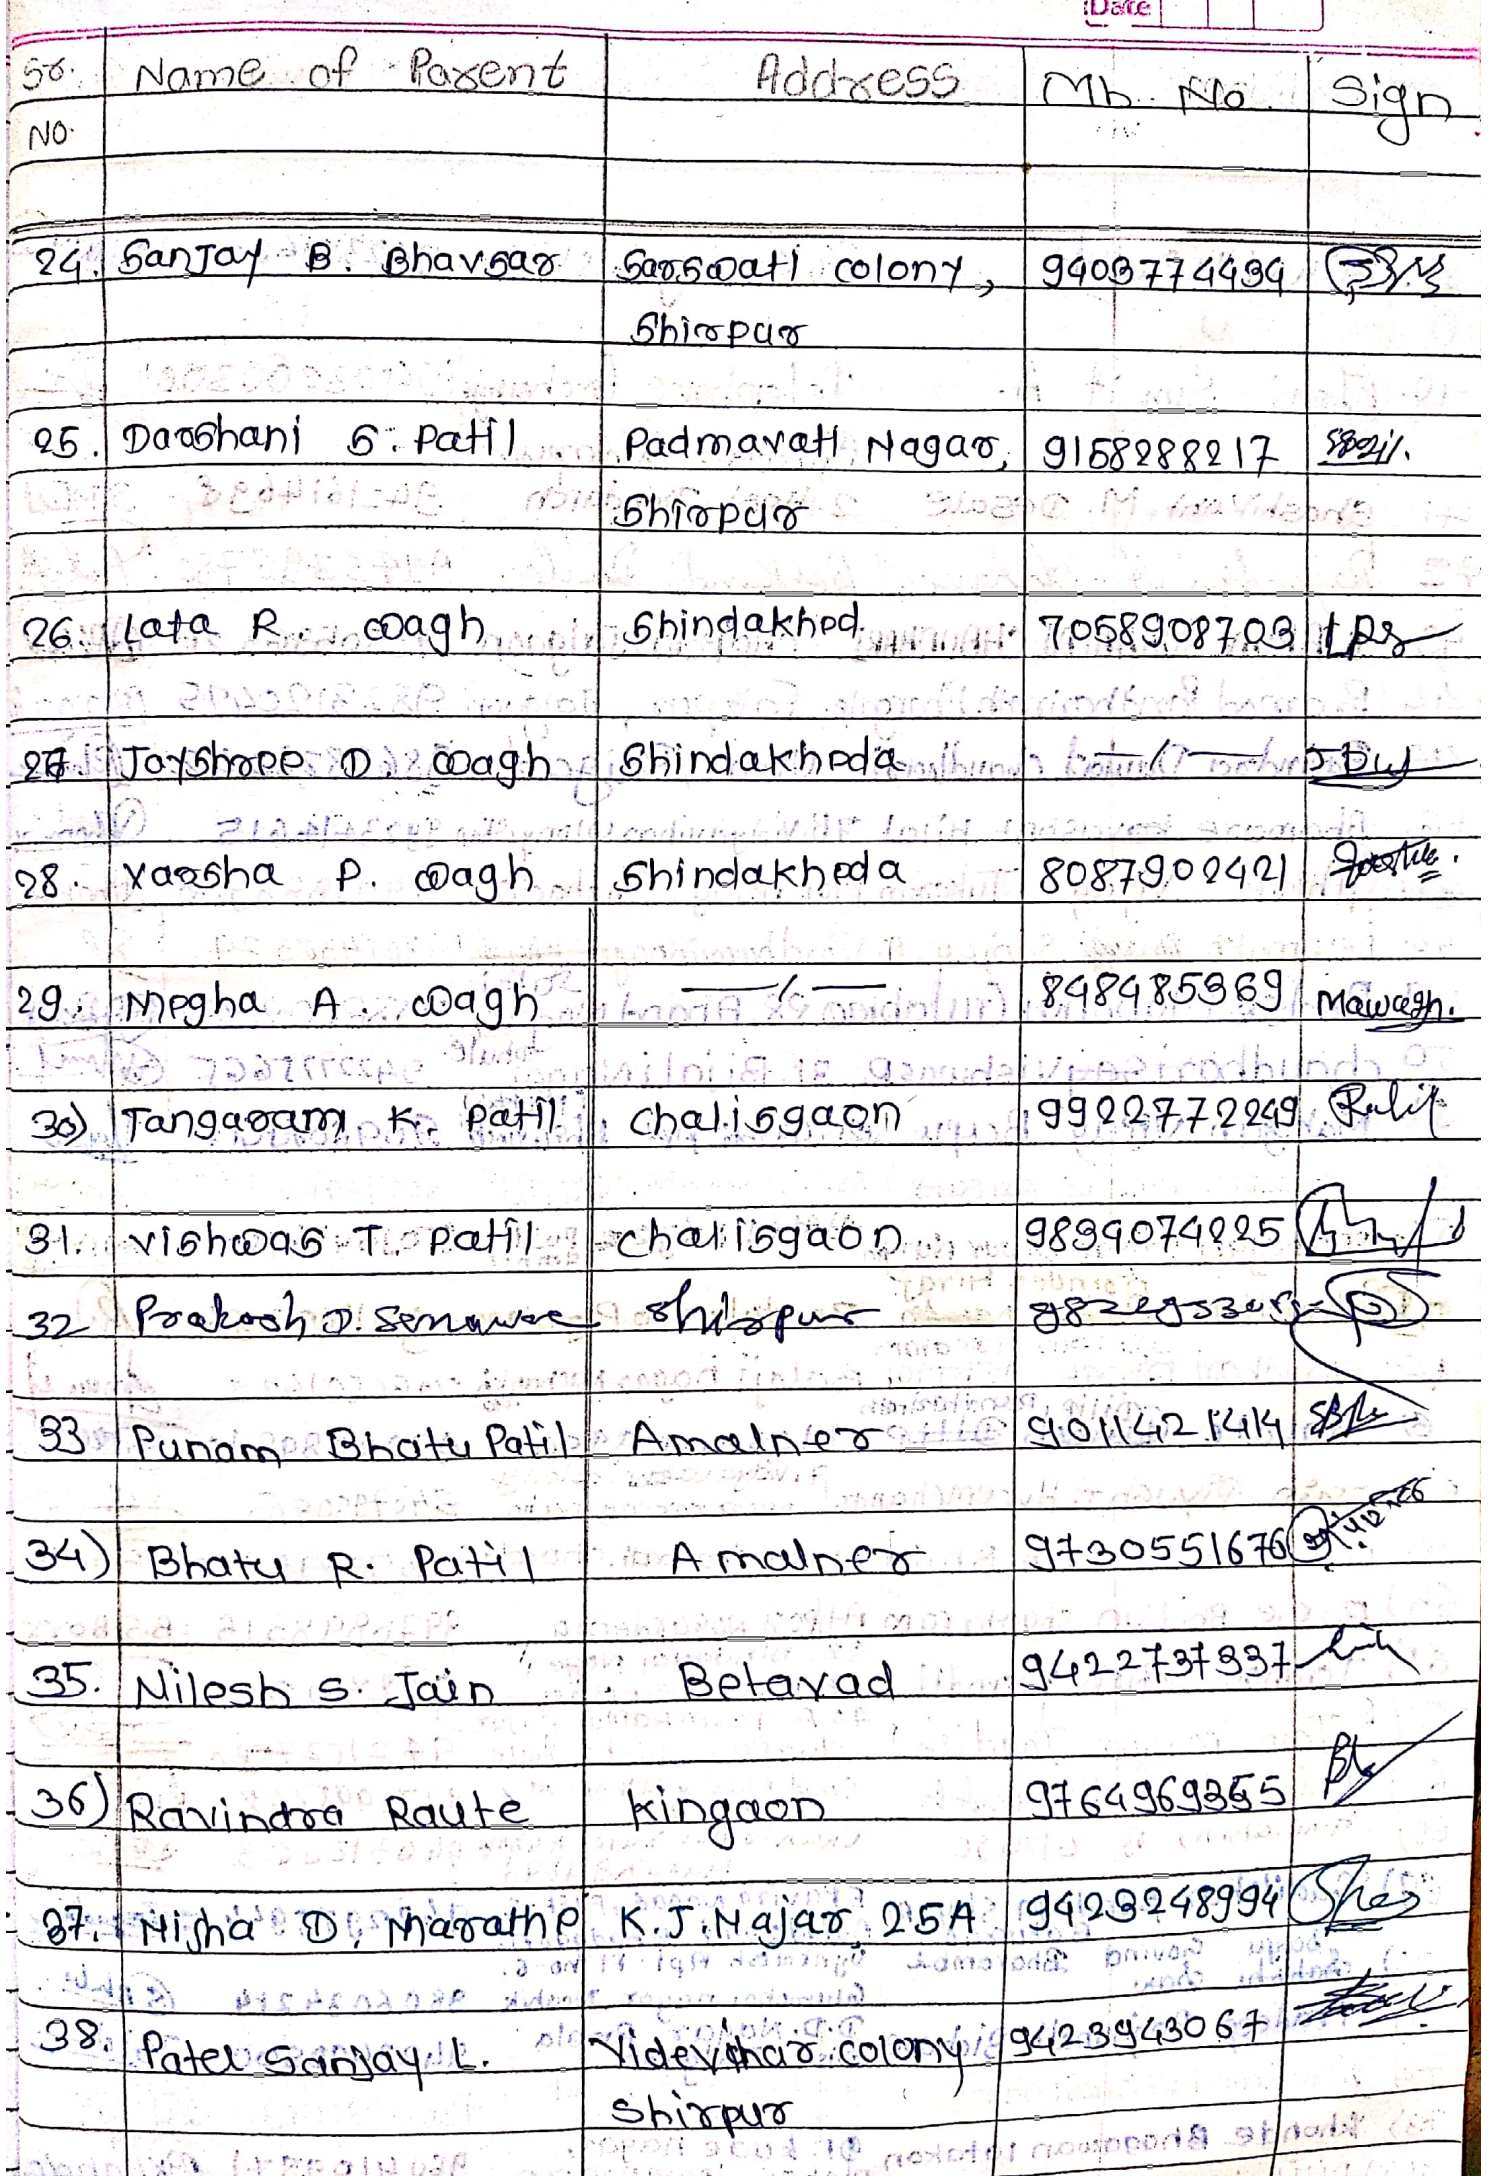 Date
Sr. Name of Parent Address Mb. No. Sign
NO.
24. Sanjay B. Bhavsar Sarswati colony, 9403774434
Shirpur
25. Darshani S. Patil Padmavati Nagar, 9158288217
Shirpur
26. Lata R. Wagh Shindakhed. 7058908703
27. Jayshree D. Wagh Shindakheda —/—
28. Varsha P. Wagh Shindakheda 8087902421
29. Megha A. Wagh —/— 848485369 Mawagh.
30) Tangaram K. Patil Chalisgaon 9922772249
31. Vishwas T. Patil Chalisgaon 9834074225
32 Prakash D. Shirpur
33 Punam Bhatu Patil Amalner 9011421414
34) Bhatu R. Patil Amalner 9730551676
35. Nilesh S. Jain Betavad 9422737337
36) Ravindra Raute Kingaon 9764969355
37. Nisha D. Marathe K.J. Najar, 25A 9423248994
38. Patel Sanjay L. Videvihar colony 9423943067
Shirpur